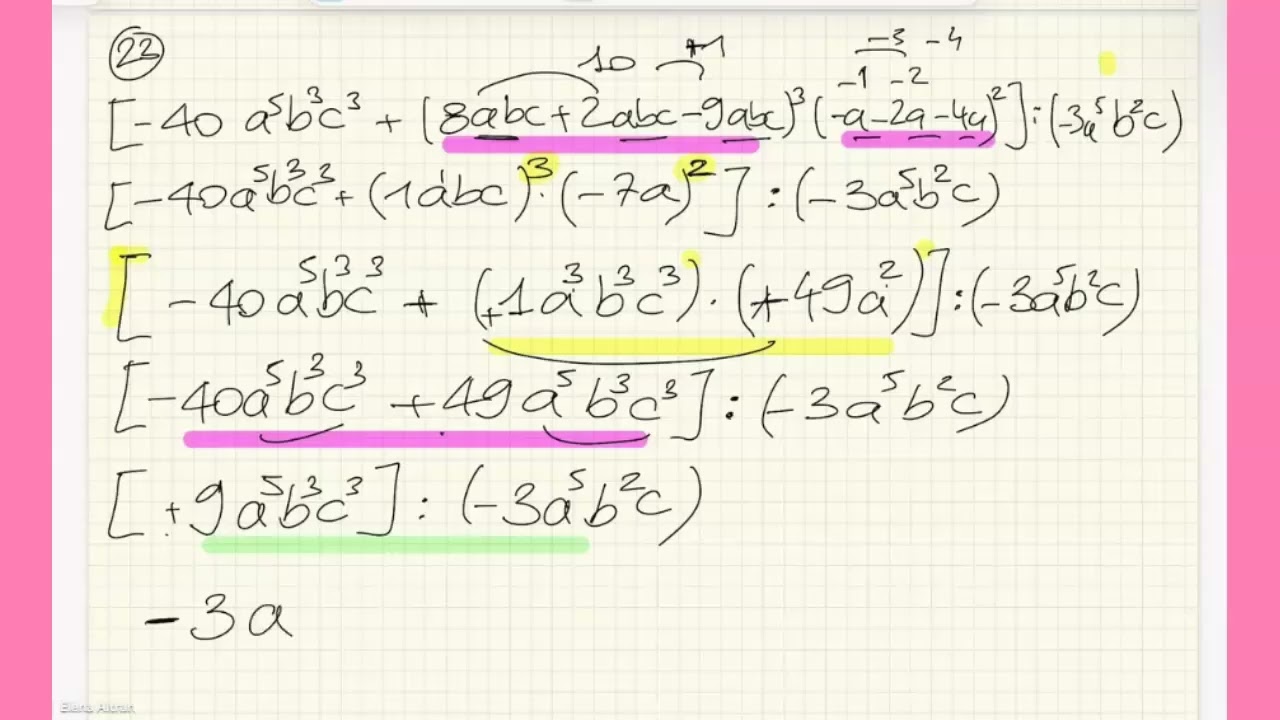 22
10 +1 -3 -4
-1 -2
[-40 a⁵b³c³ + (8abc+2abc-9abc)³(-a-2a-4a)²]:(-3a⁵b²c)
[-40a⁵b³c³+(1a¹bc)³·(-7a)²]:(-3a⁵b²c)
[-40a⁵b³c³ + (+1a³b³c³)·(+49a²)]:(-3a⁵b²c)
[-40a⁵b³c³ +49a⁵b³c³]:(-3a⁵b²c)
[+9a⁵b³c³]:(-3a⁵b²c)
-3a